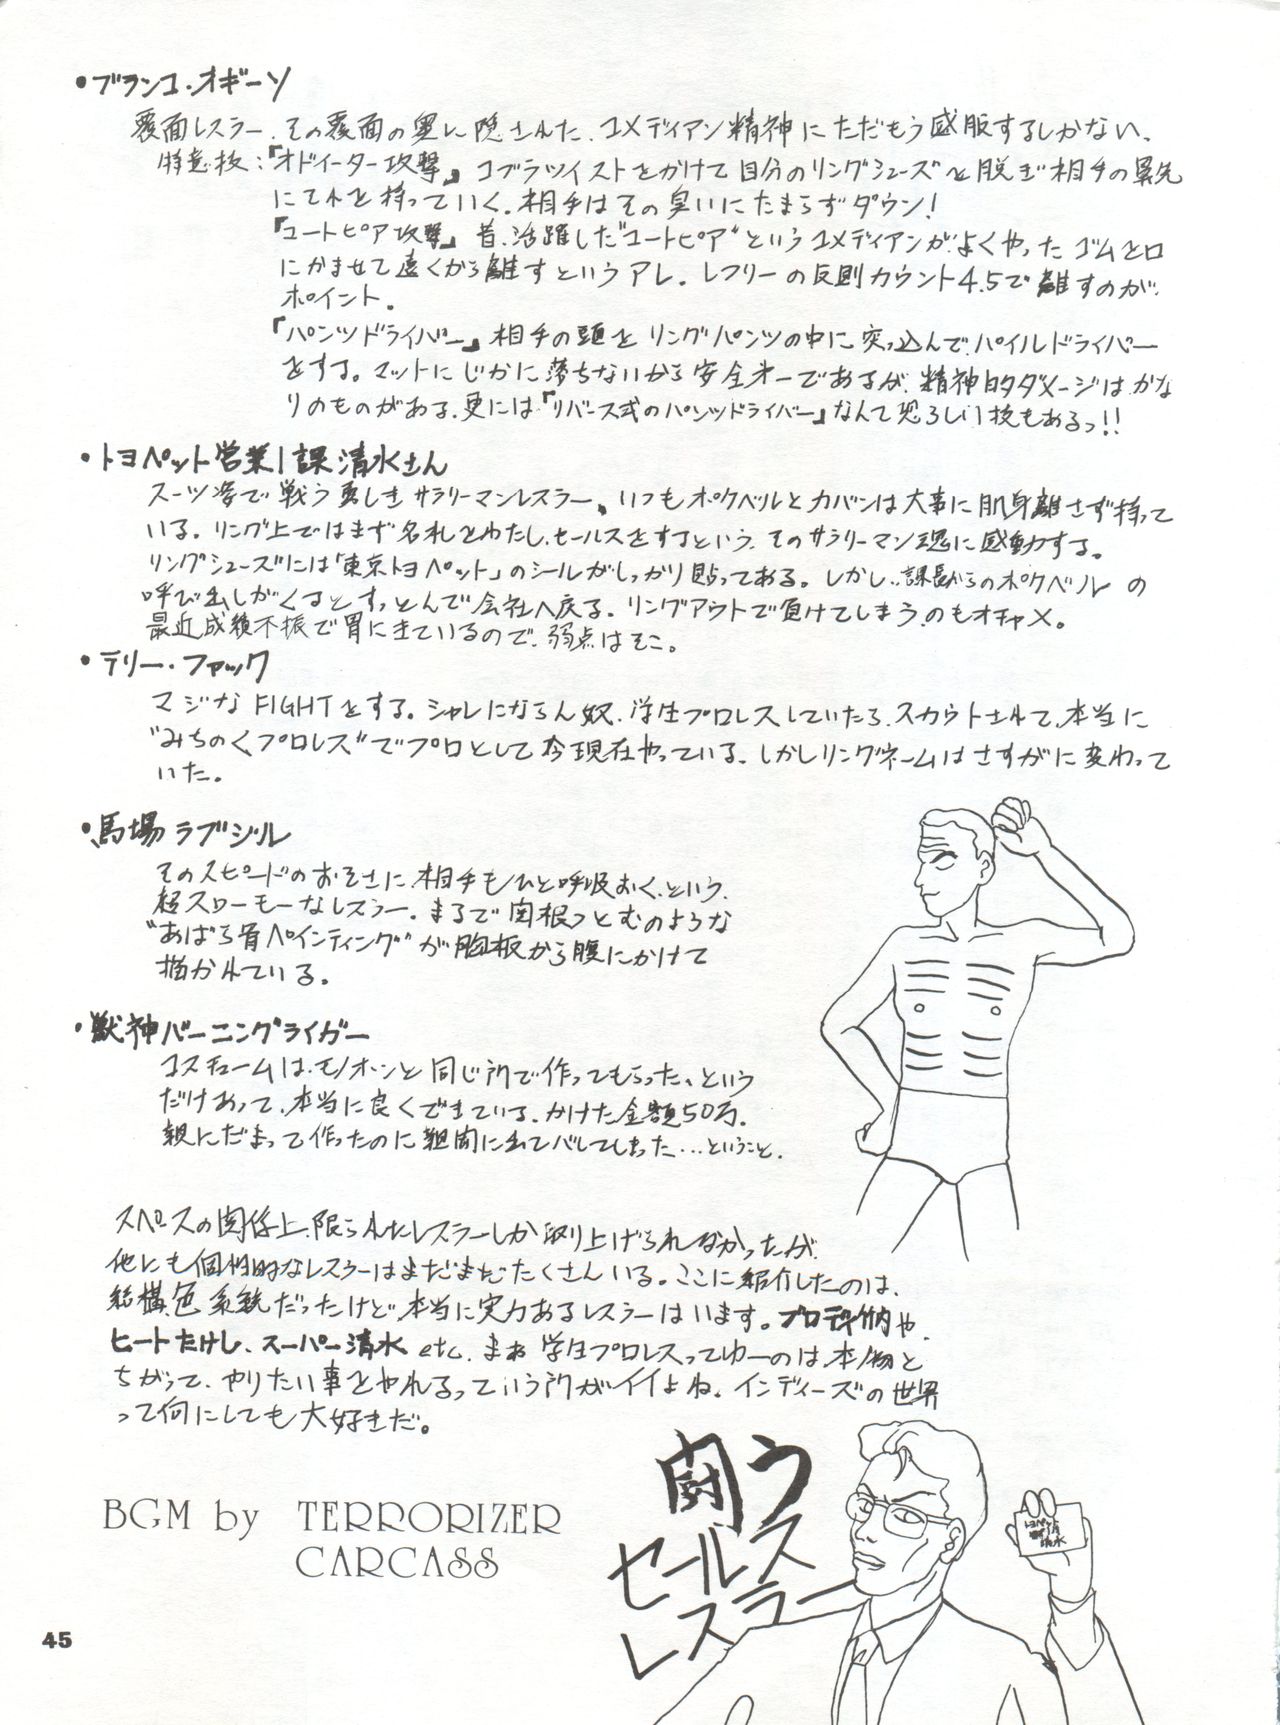 ・ブランコ・オギーソ
覆面レスラー、その覆面の奥に隠された、コメディアン精神にただもう感服するしかない、
特意技：『オドイーター攻撃』コブラツイストをかけて自分のリングシューズを脱ぎ相手の鼻先
にそれを持っていく、相手はその臭いにたまらずダウン!
『ユートピア攻撃』昔、活躍した“ユートピア”というコメディアンがよくやったゴムを口
にかませて遠くから離すというアレ、レフリーの反則カウント4.5で離すのが
ポイント.
『パンツドライバー』相手の頭をリングパンツの中に突っ込んでパイルドライバー
をする。マットにじかに落ちないから安全オーであるが、精神的ダメージはかな
りのものがある、更には『リバース式のパンツドライバー』なんて恐ろしい技もあるっ!!
・トヨペット営業1課清水さん
スーツ姿で戦う勇しきサラリーマンレスラー、いつもポケベルとカバンは大事に肌身離さず持って
いる。リング上ではまず名札をわたし、セールスをするという、そのサラリーマン魂に感動する。
リングシューズには「東京トヨペット」のシールがしっかり貼ってある。しかし、課長からのポケベルの
呼び出しがくるとすっとんで会社へ戻る。リングアウトで負けてしまうのもオチャメ。
最近成績不振で胃にきているので、弱点はそこ。
・テリー・ファック
マジなFIGHTをする。シャレにならん奴、学生プロレスしていたら、スカウトされて、本当に
“みちのくプロレス”でプロとして今現在やっている、しかしリングネームはさすがに変わって
いた。
・馬場ラブジル
そのスピードのおそさに、相手もひと呼吸おく、という、
超スローモーなレスラー、まるで関根つとむのような
“あばら骨ペインティング”が胸板から腹にかけて
描かれている。
・獣神バーニングライガー
コスチュームは、モノホーンと同じ所で作ってもらった、という
だけあって、本当に良くできている、かけた金額50万.
親にだまって作ったのに新聞に出てバレてしまった…ということ.
スペースの関係上、限られたレスラーしか取り上げられなかったが、
他にも個性的なレスラーはまだまだたくさんいる。ここに紹介したのは、
結構色系統だったけど、本当に実力あるレスラーはいます。ブロディ竹内や、
ヒートたけし、スーパー清水etc、まぁ学生プロレスってゆーのは、本物と
ちがって、やりたい事をやれるっていう所がイイよね、インディーズの世界
って何にしても大好きだ。
BGM by TERRORIZER
CARCASS
闘う
セールス
レスラー
トヨペット
清水
45